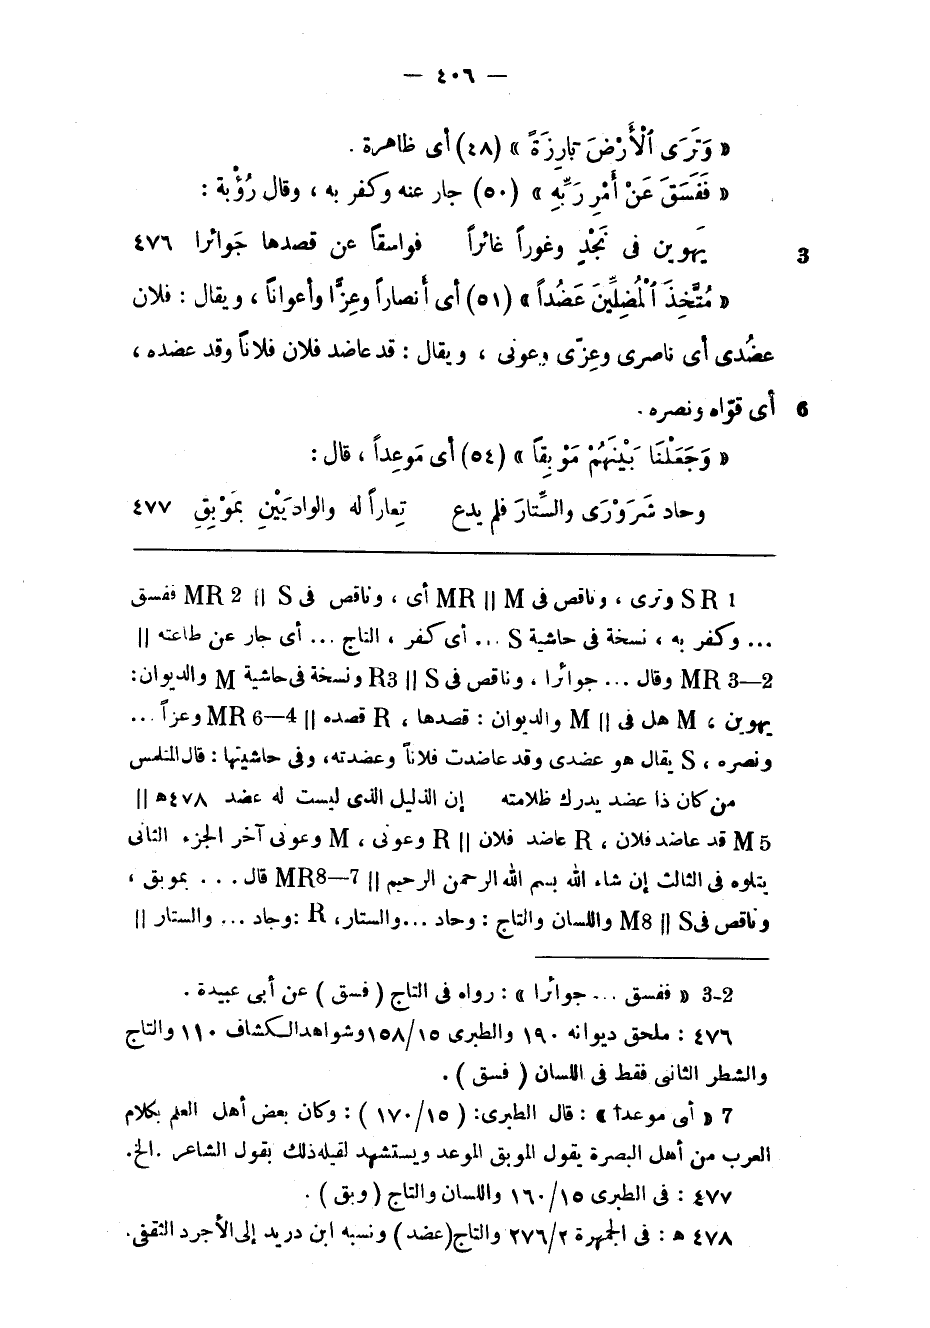 — ٤٠٦ —
« وَتَرَى ٱلْأَرْضَ بَارِزَةً » (٤٨) أى ظاهرة .
« فَفَسَقَ عَنْ أَمْرِ رَبِّهِ » (٥٠) جار عنه وكفر به ، وقال رُؤْبة :
يَهوين فى نَجْدٍ وغوراً غائراً فواسقاً عن قصدها جَوائرا ٤٧٦ 3
« مُتَّخِذَ ٱلْمُضِلِّينَ عَضُداً » (٥١) أى أنصاراً وعِزًّا وأعواناً ، ويقال : فلان
عضُدى أى ناصرى وعِزّى وعونى ، ويقال : قد عاضد فلان فلاناً وقد عضده ،
أى قوّاه ونصره . 6
« وَجَعَلْنَا بَيْنَهُمْ مَوْبِقاً » (٥٤) أى مَوعِداً ، قال :
وحاد شَرَوْرَى والسِّتارَ فلم يدع تِعاراً له والواديَيْنِ بمَوْبِقِ ٤٧٧
1 SR وترى ، وناقص فى MR || M أى ، وناقص فى MR 2 || S ففسق
... وكفر به ، نسخة فى حاشية S ... أى كفر ، التاج ... أى جار عن طاعته ||
MR 3—2 وقال ... جوائرا ، وناقص فى R3 || S ونسخة فى حاشية M والديوان:
يهوين ، M هل فى || M والديوان : قصدها ، R قصده || MR 6—4 وعزاً ...
ونصره ، S يقال هو عضدى وقد عاضدت فلاناً وعضدته، وفى حاشيتها : قال المتلمس
من كان ذا عضد يدرك ظلامته إن الذليل الذى ليست له عضد ٤٧٨ﻫ ||
M 5 قد عاضد فلان ، R عاضد فلان || R وعونى ، M وعونى آخر الجزء الثانى
يتلوه فى الثالث إن شاء الله بسم الله الرحمن الرحيم || MR8—7 قال . . . بموبق ،
وناقص فى M8 || S واللسان والتاج : وحاد ...والستار، R :وجاد ... والستار ||
3-2 « ففسق ... جوائرا » : رواه فى التاج ( فسق ) عن أبى عبيدة .
٤٧٦ : ملحق ديوانه ١٩٠ والطبرى ١٥٨/١٥ وشواهد الكشاف ١١٠ والتاج
والشطر الثانى فقط فى اللسان ( فسق ) .
7 « أى موعداً » : قال الطبرى: ( ١٧٠/١٥ ) : وكان بعض أهل العلم بكلام
العرب من أهل البصرة يقول الموبق الموعد ويستشهد لقيله ذلك بقول الشاعر .الخ.
٤٧٧ : فى الطبرى ١٦٠/١٥ واللسان والتاج ( وبق ) .
٤٧٨ ﻫ : فى الجمهرة ٢٧٦/٢ والتاج(عضد ) ونسبه ابن دريد إلى الأجرد الثقفى.